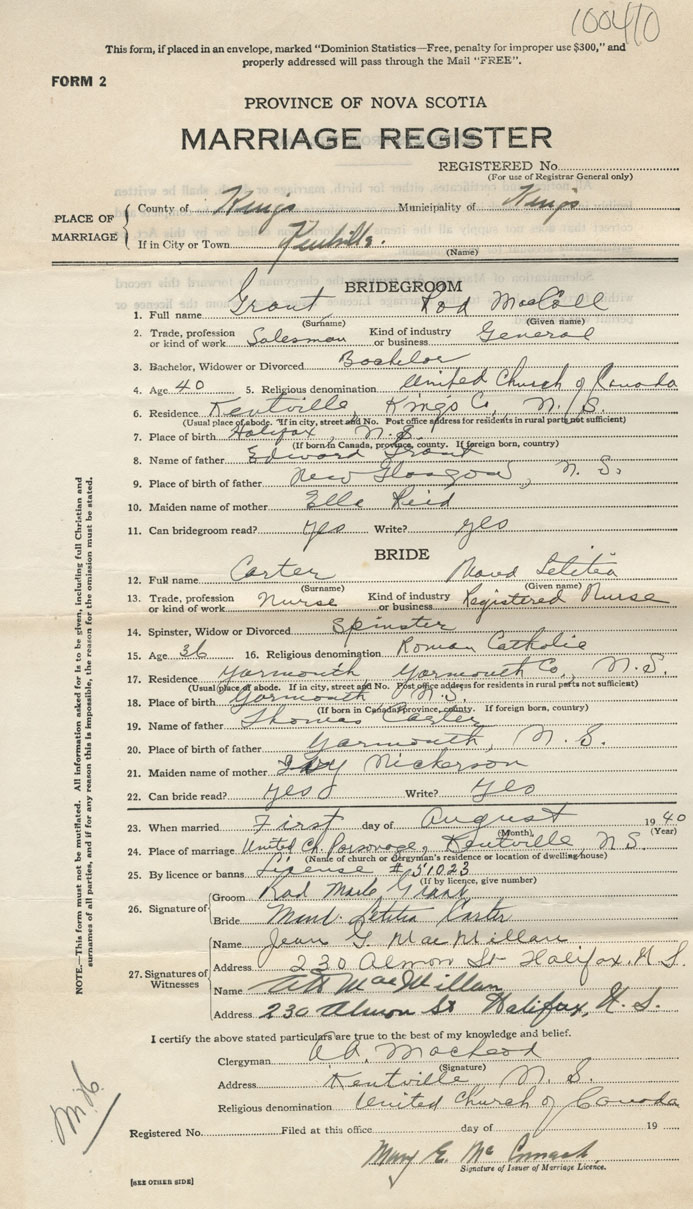 100410
This form, if placed in an envelope, marked "Dominion Statistics—Free, penalty for improper use $300," and
properly addressed will pass through the Mail "FREE".
FORM 2
PROVINCE OF NOVA SCOTIA
MARRIAGE REGISTER
REGISTERED No.
(For use of Registrar General only)
PLACE OF MARRIAGE
County of Kings Municipality of Kings
If in City or Town Kentville.
(Name)
BRIDEGROOM
1. Full name Grant Rod
(Surname) (Given name)
2. Trade, profession or kind of work Salesman Kind of industry or business General
3. Bachelor, Widower or Divorced Bachelor
4. Age 40 5. Religious denomination United Church of Canada
6. Residence Kentville, Kings Co., N.S.
(Usual place of abode. If in city, street and No. Post office address for residents in rural parts not sufficient)
7. Place of birth Halifax, N.S.
(If born in Canada, province, county. If foreign born, country)
8. Name of father Edward Grant
9. Place of birth of father New Glasgow, N. S.
10. Maiden name of mother Ella Reid
11. Can bridegroom read? yes Write? yes
BRIDE
12. Full name Carter Maud Letitia
(Surname) (Given name)
13. Trade, profession or kind of work Nurse Kind of industry or business Registered Nurse
14. Spinster, Widow or Divorced Spinster
15. Age 36 16. Religious denomination Roman Catholic
17. Residence Yarmouth, Yarmouth Co., N.S.
(Usual place of abode. If in city, street and No. Post office address for residents in rural parts not sufficient)
18. Place of birth Yarmouth N.S.
(If born in Canada, province, county. If foreign born, country)
19. Name of father Thomas Carter
20. Place of birth of father Yarmouth, N. S.
21. Maiden name of mother Nickerson
22. Can bride read? yes Write? yes
23. When married First day of August 1940
(Month) (Year)
24. Place of marriage United Ch. Parsonage, Kentville, N.S.
(Name of church or clergyman's residence or location of dwelling house)
25. By licence or banns License # 51023
(If by licence, give number)
26. Signature of
Groom Rod Grant
Bride Maud Letitia Carter
27. Signatures of Witnesses
Name Jean G. MacMillan
Address 230 Almon St Halifax, N.S.
Name MacMillan
Address 230 Almon St Halifax, N. S.
I certify the above stated particulars are true to the best of my knowledge and belief.
Clergyman A. MacLeod
(Signature)
Address Kentville N. S.
Religious denomination United Church of Canada
Registered No. Filed at this office day of 19
Mary E.
Signature of Issuer of Marriage Licence.
[SEE OTHER SIDE]
NOTE.—This form must not be mutilated. All information asked for is to be given, including full Christian and
surnames of all parties, and if for any reason this is impossible, the reason for the omission must be stated.